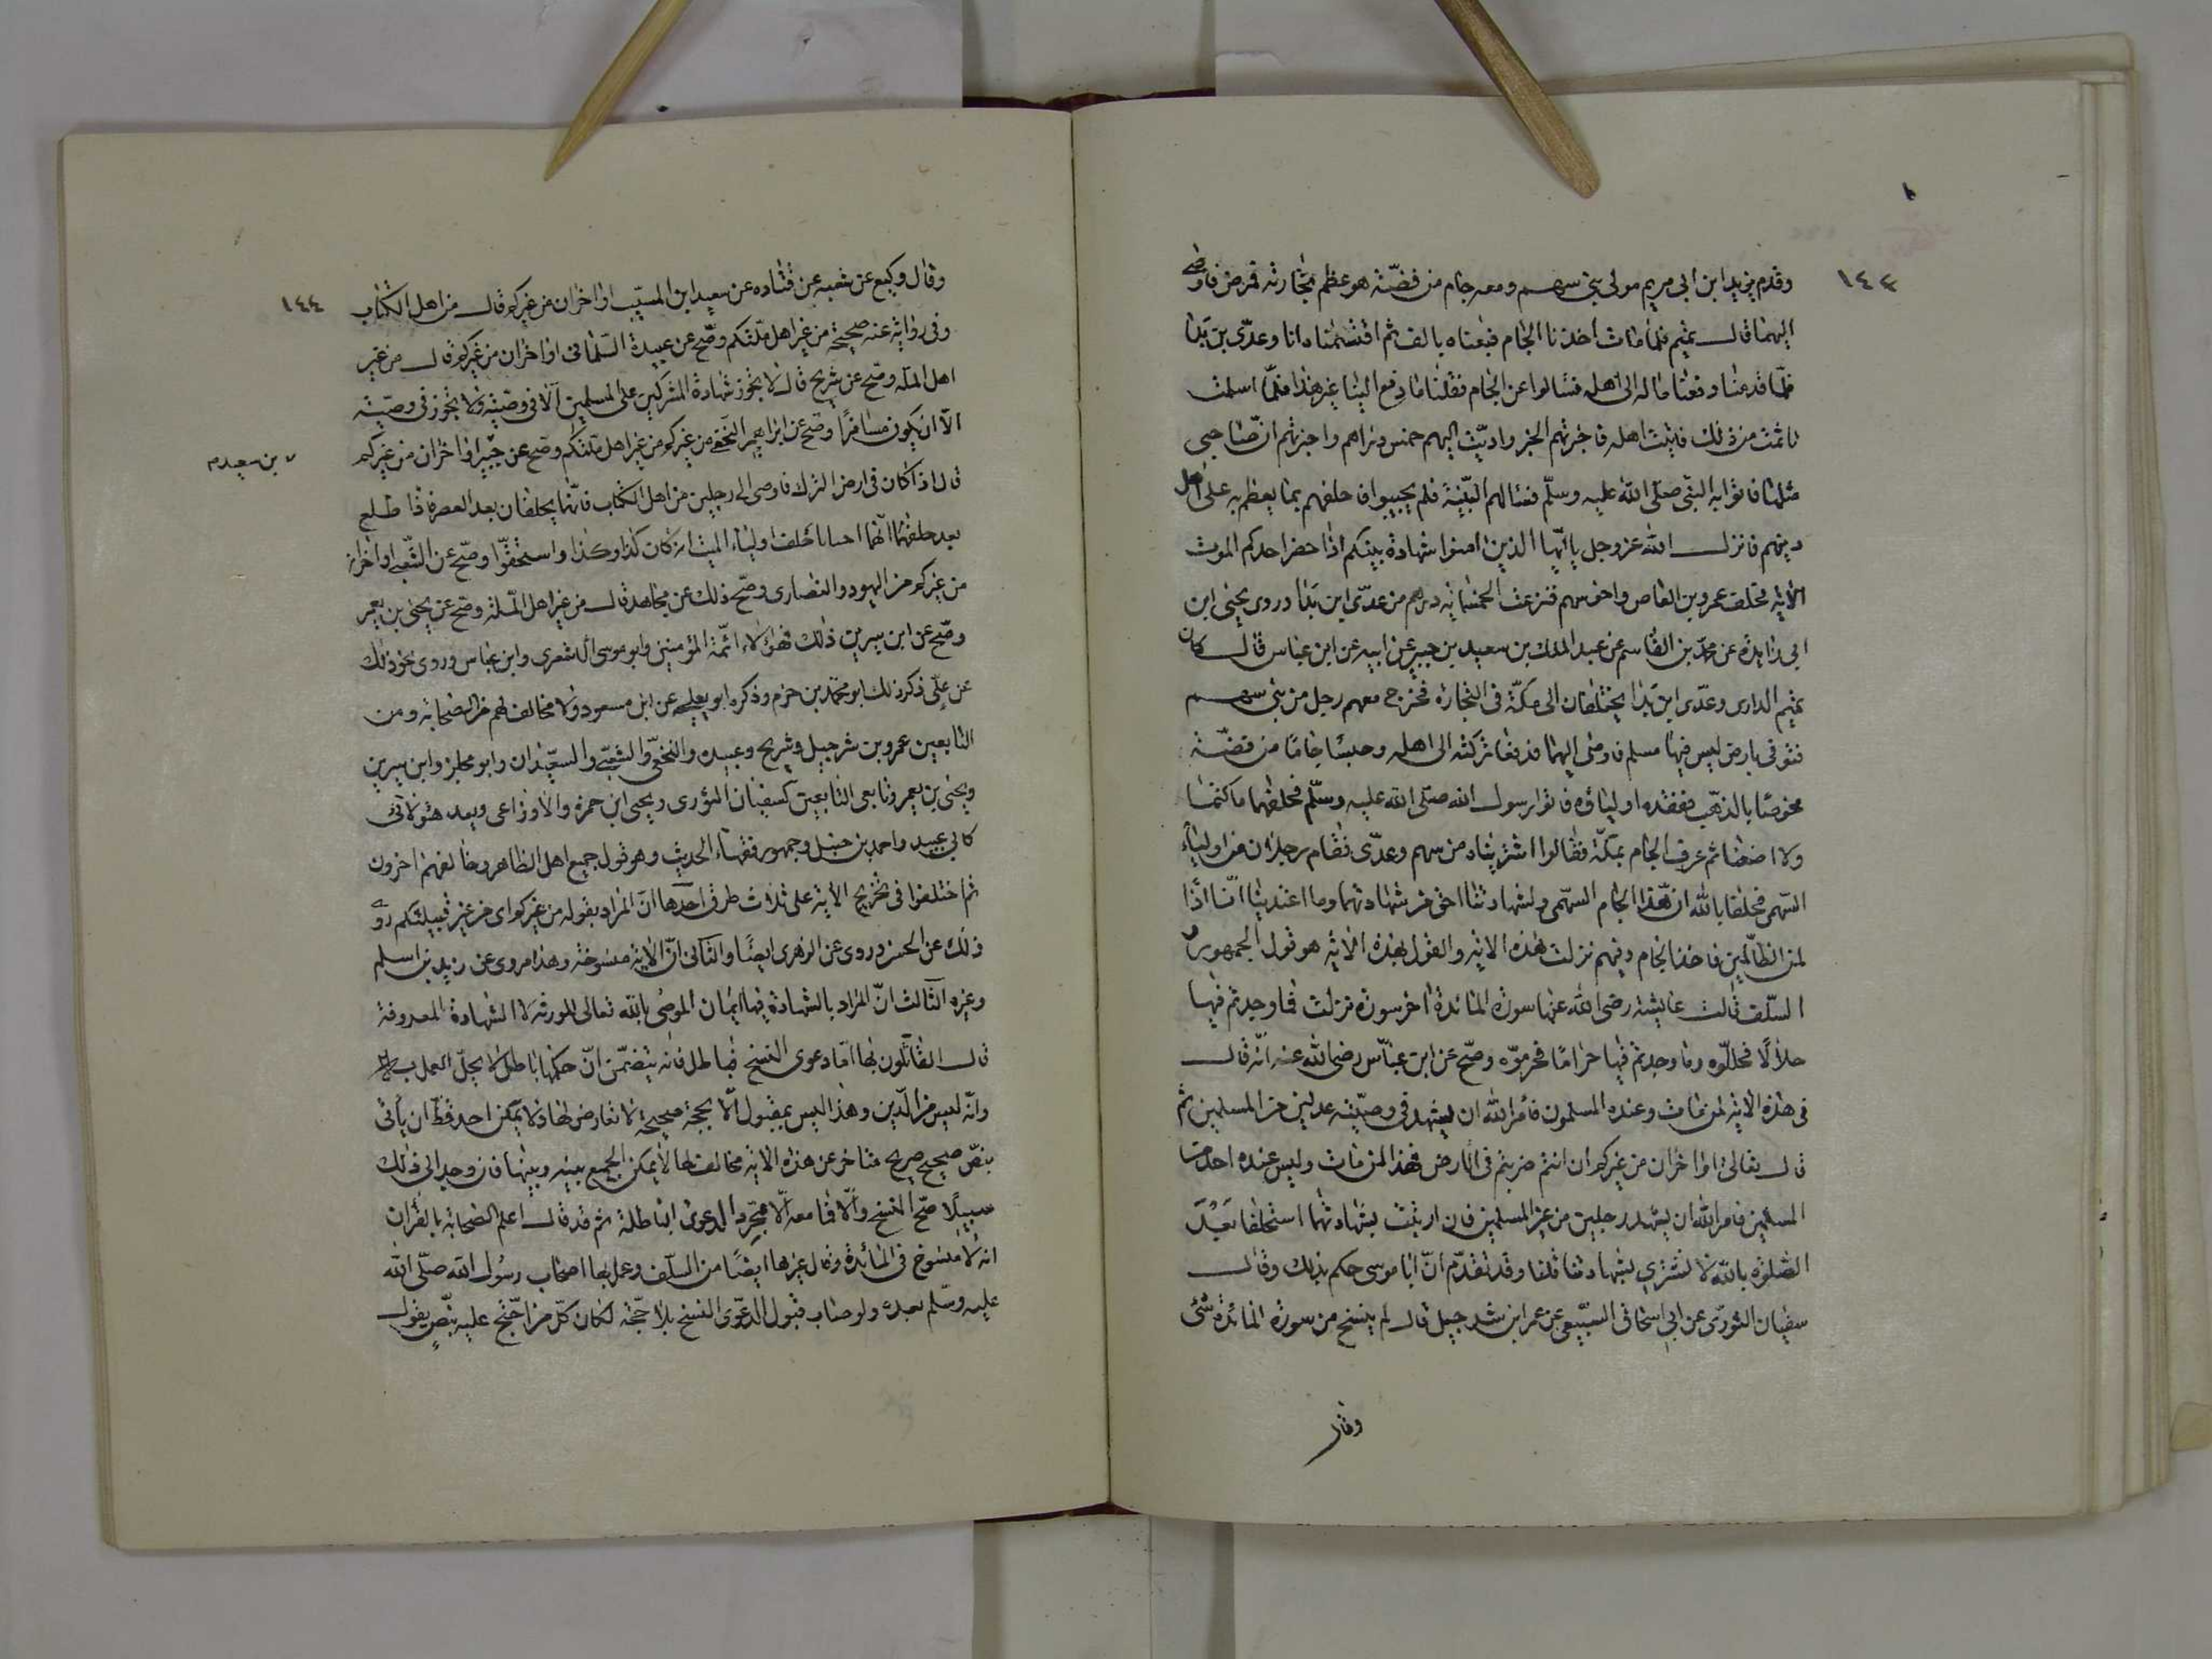 ١٤٣
وقدم يزيد ابن ابي مريم مولى بني سهم ومعه جام من فضّة هو عظم تجارته فمرض فاوصى
اليهما قال تميم فلمّا مات اخذنا الجام فبعناه بالف ثم اقتسمناه انا وعدّى بن بَدّا
فلمّا قدمنا دفعنا ماله الى اهله فسالوا عن الجام فقلنا ما دفع الينا غير هذا فلمّا اسلمت
تاثمت من ذلك فاتيت اهله فاخبرتهم الخبر واديّت اليهم خمس دراهم واخبرتهم انّ صاحبي
مثلها فاتوا به النبي صلّى الله عليه وسلّم فسالهم البيّنة فلم يجيبوا فاحلفهم بما يعظم به على اهل
دينهم فانزل الله عز وجل يا ايّها الذين امنوا شهادة بينكم اذا حضر احدكم الموت
الاية فحلف عمرو بن العاص واخر سهم فنزعت الخمسماية درهم من عدّى ابن بَدّا وروى يحيى ابن
ابي زايدة عن محمّد بن القاسم عن عبد الملك بن سعيد بن جبير عن ابيه عن ابن عباس قال كان
تميم الدارى وعدّى ابن بَدا يختلفان الى مكّة في التجارة فخرج معهم رجل من بني سهم
فتوفى بارض ليس فيها مسلم فاوصى اليهما فدفعا تركته الى اهله وحبسا جامًا من فضّة
مخوصًا بالذهب ففقده اولياؤه فاتوا رسول الله صلّى الله عليه وسلّم فحلفهما ما كتمنا
ولا اضعنا ثم عرف الجام بمكّة فقالوا اشتريناه من سهم وعدّى فقام رجلان من اولياء
السّهمى فحلفا بالله ان هذا الجام السّهمى ولشهادتنا احق من شهادتهما وما اعتدينا انّا اذًا
لمن الظالمين فاخذ الجام وفيهم نزلت هذه الاية والقول بهذه الاية هو قول الجمهور
السّلف قالت عايشة رضى الله عنها سورة المائدة اخر سورة نزلت فما وجدتم فيها
حلالًا فحلّلوه وما وجدتم فيها حرامًا فحرموّه وصّح عن ابن عباّس رضى الله عنه انّه قال
في هذه الاية لمن مات وعنده المسلمون فأمر الله ان يشهد في وصيّته عدلين من المسلمين ثم
قال تعالى او اخران من غيركم ان انتم ضربتم في الارض فهذا لمن مات وليس عنده احد من
المسلمين فامر الله ان يشهد رجلين من غير المسلمين فان اريتت بشهادتهما استحلفا بَعْدَ
الصّلوة بالله لا نشترى بشهادتنا ثمنا وقد تقدّم انّ ابا موسى حكم بذلك وقال
سفيان الثورّى عن ابي اسحاق السّبيعى عن عمر ابن شرجيل قال لم ينسخ من سورة المائدة شئ
وقال
١٤٤
وقال وكيع عن شعبه عن قتاده عن سعيد ابن المسيّب او اخران من غيركم قال من اهل الكتاب
وفي رواية عنه صحيحة من غير اهل ملّتكم وصّح عن عبيدة السّلماني او اخران من غيركم قال من غير
اهل الملّه وصّح عن شريح قال لا يجوز شهادة المشركين على المسلمين الّا في وصّية ولا يجوز في وصّية
الّا ان يكون مسافرًا وصّح عن ابراهيم النخعى من غيركم من غير اهل ملّتكم وصّح عن جبير او اخران من غيركم
بن سعيد م
قال اذا كان في ارض الترك فاوصى الى رجلين من اهل الكتاب فانّهما يحلفان بعد العصر فاذا طلع
بعد حلفهما انّهما خانا حلف اولياء الميت انه كان كذا وكذا واستحقّوا وصّح عن الشّعبى او اخران
من غيركم من اليهود والنصارى وصّح ذلك عن مجاهد قال من غير اهل الملّة وصّح عن يحيى بن يعمر
وصّح عن ابن سيرين ذلك فهؤلاء ائمّة المؤمنين وابو موسى الاشعرى وابن عباس وروى نحو ذلك
عن علّى ذكر ذلك ابو محمّد بن حزم وذكره ابو يعلى عن ابن مسعود ولا مخالف لهم من الصحابة ومن
التابعين عمرو بن شرجبيل وشريح وعبيده والنخعّى والشعبّى والسعيدان وابو مجلز وابن سيرين
ويحيى بن يعمر وتابعى التابعين كسفيان الثورى ويحيى ابن حمزة والاوزاعى وبعد هؤلائى
كابي عبيد واحمد بن حنبل وجمهور فقهاء الحديث وهو قول جميع اهل الظاهر وخالفهم اخرون
ثم اختلفوا في تخريج الاية على ثلاث طرق احدها انّ المراد بقوله من غيركم اى من غير قبيلتكم روى
ذلك عن الحسن وروى عن الزهرى ايضًا والثانى انّ الاية منسوخة وهذا مروى عن زيد بن اسلم
وغيره الثالث انّ المراد بالشهادة فيها ايمان الموصى بالله تعالى للورثة لا الشهادة المعروفة
قال القائلون بها امّا دعوى النسخ فباطل فانه يتضمّن انّ حكمها باطل لا يحلّ العمل به
وانّه ليس من الدّين وهذا ليس بمقبول الّا بحجة صحيحة لا تعارض لها ولا يمكن احد قطّ ان يأتى
بنصّ صحيح صريح متاخر عن هذه الاية مخالف لها لا يمكن الجمع بينه وبينها فان وجد الى ذلك
سبيلًا صّح النسخ والّا فما معه الّا مجرّد الدعوى الباطلة ثم قد قال اعلم الصحابة بالقران
انه لا منسوخ في المائدة وقال غيرها ايضًا من السلف وعمل بها اصحاب رسول الله صلّى الله
عليه وسلّم بعده ولو جاب قبول الدعّوى النسخ بلا حجّة لكان كلّ من احّتج عليه بنّصٍ يقول